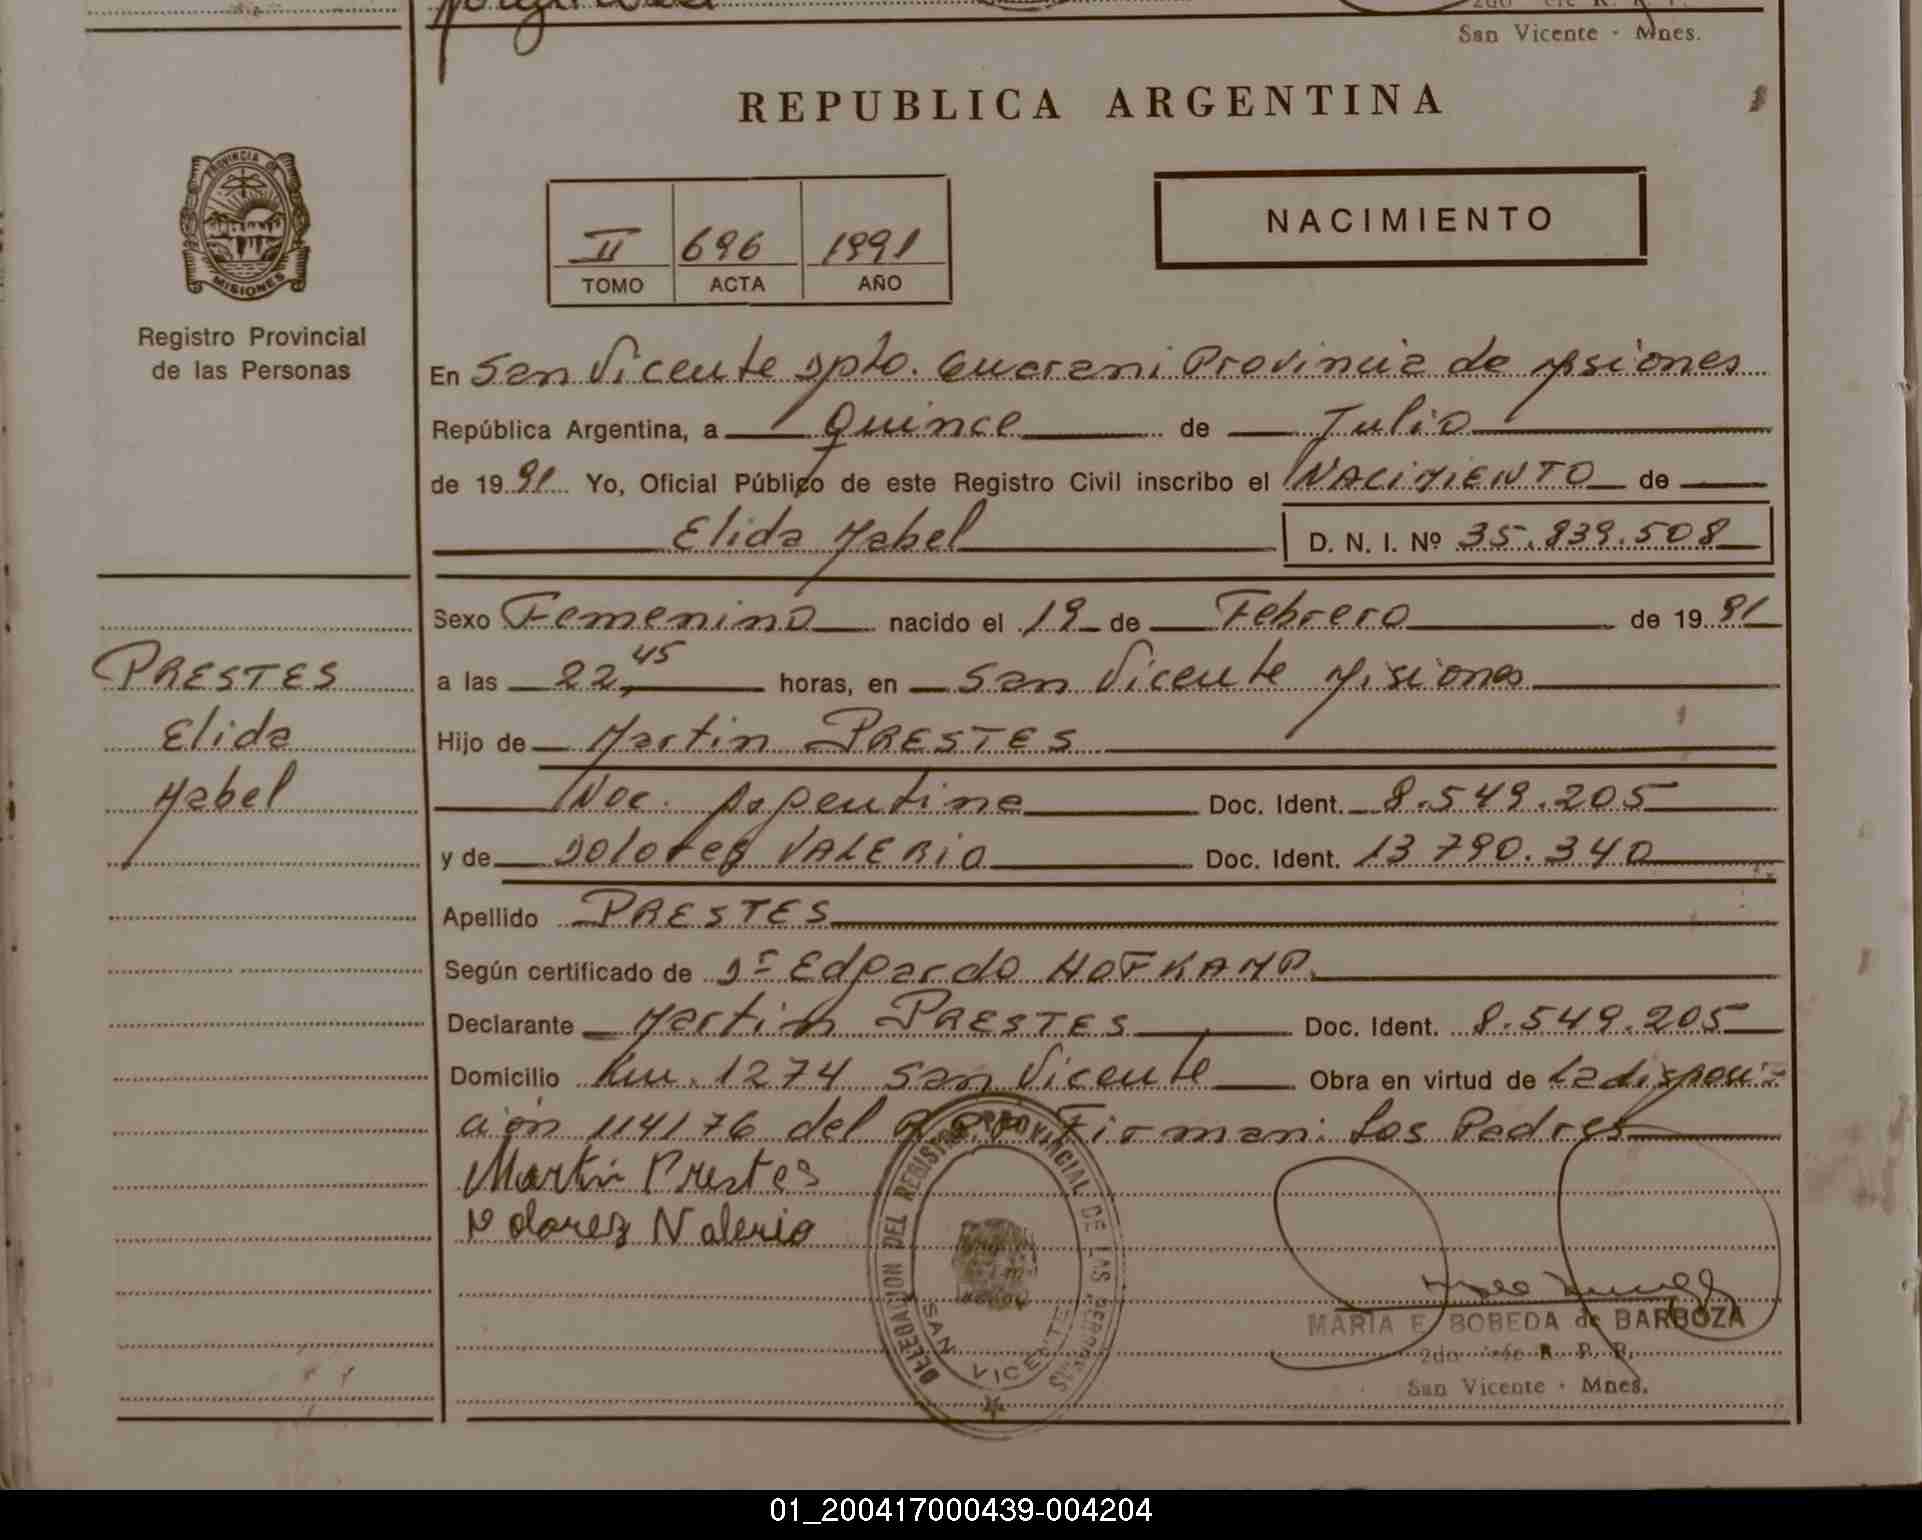 San Vicente - Mnes.
REPUBLICA ARGENTINA
PROVINCIA DE
MISIONES
Registro Provincial
de las Personas
II 696 1991
TOMO ACTA AÑO
NACIMIENTO
En San Vicente Dpto. Guarani Provincia de Misiones
República Argentina, a Quince de Julio
de 1991 Yo, Oficial Público de este Registro Civil inscribo el NACIMIENTO de
Elida Mabel D. N. I. Nº 35.839.508
Sexo Femenino nacido el 19 de Febrero de 1991
a las 22,45 horas, en San Vicente Misiones
Hijo de Martin PRESTES
Nac. Argentina Doc. Ident. 8.549.205
y de Dolores VALERIO Doc. Ident. 13 790.340
Apellido PRESTES
Según certificado de Dr Edgardo HOFKAMP
Declarante Martin PRESTES Doc. Ident. 8.549.205
Domicilio Km. 1274 San Vicente Obra en virtud de La disposi-
ción 114/76 del Firman: Los Padres
Martin Prestes
Dolores Valerio
PRESTES
Elida
Mabel
DELEGACION DEL REGISTRO PROVINCIAL DE LAS PERSONAS
SAN VICENTE
MARIA E. BOBEDA de BARBOZA
2do Jefe R. P. P.
San Vicente - Mnes.
01_200417000439-004204